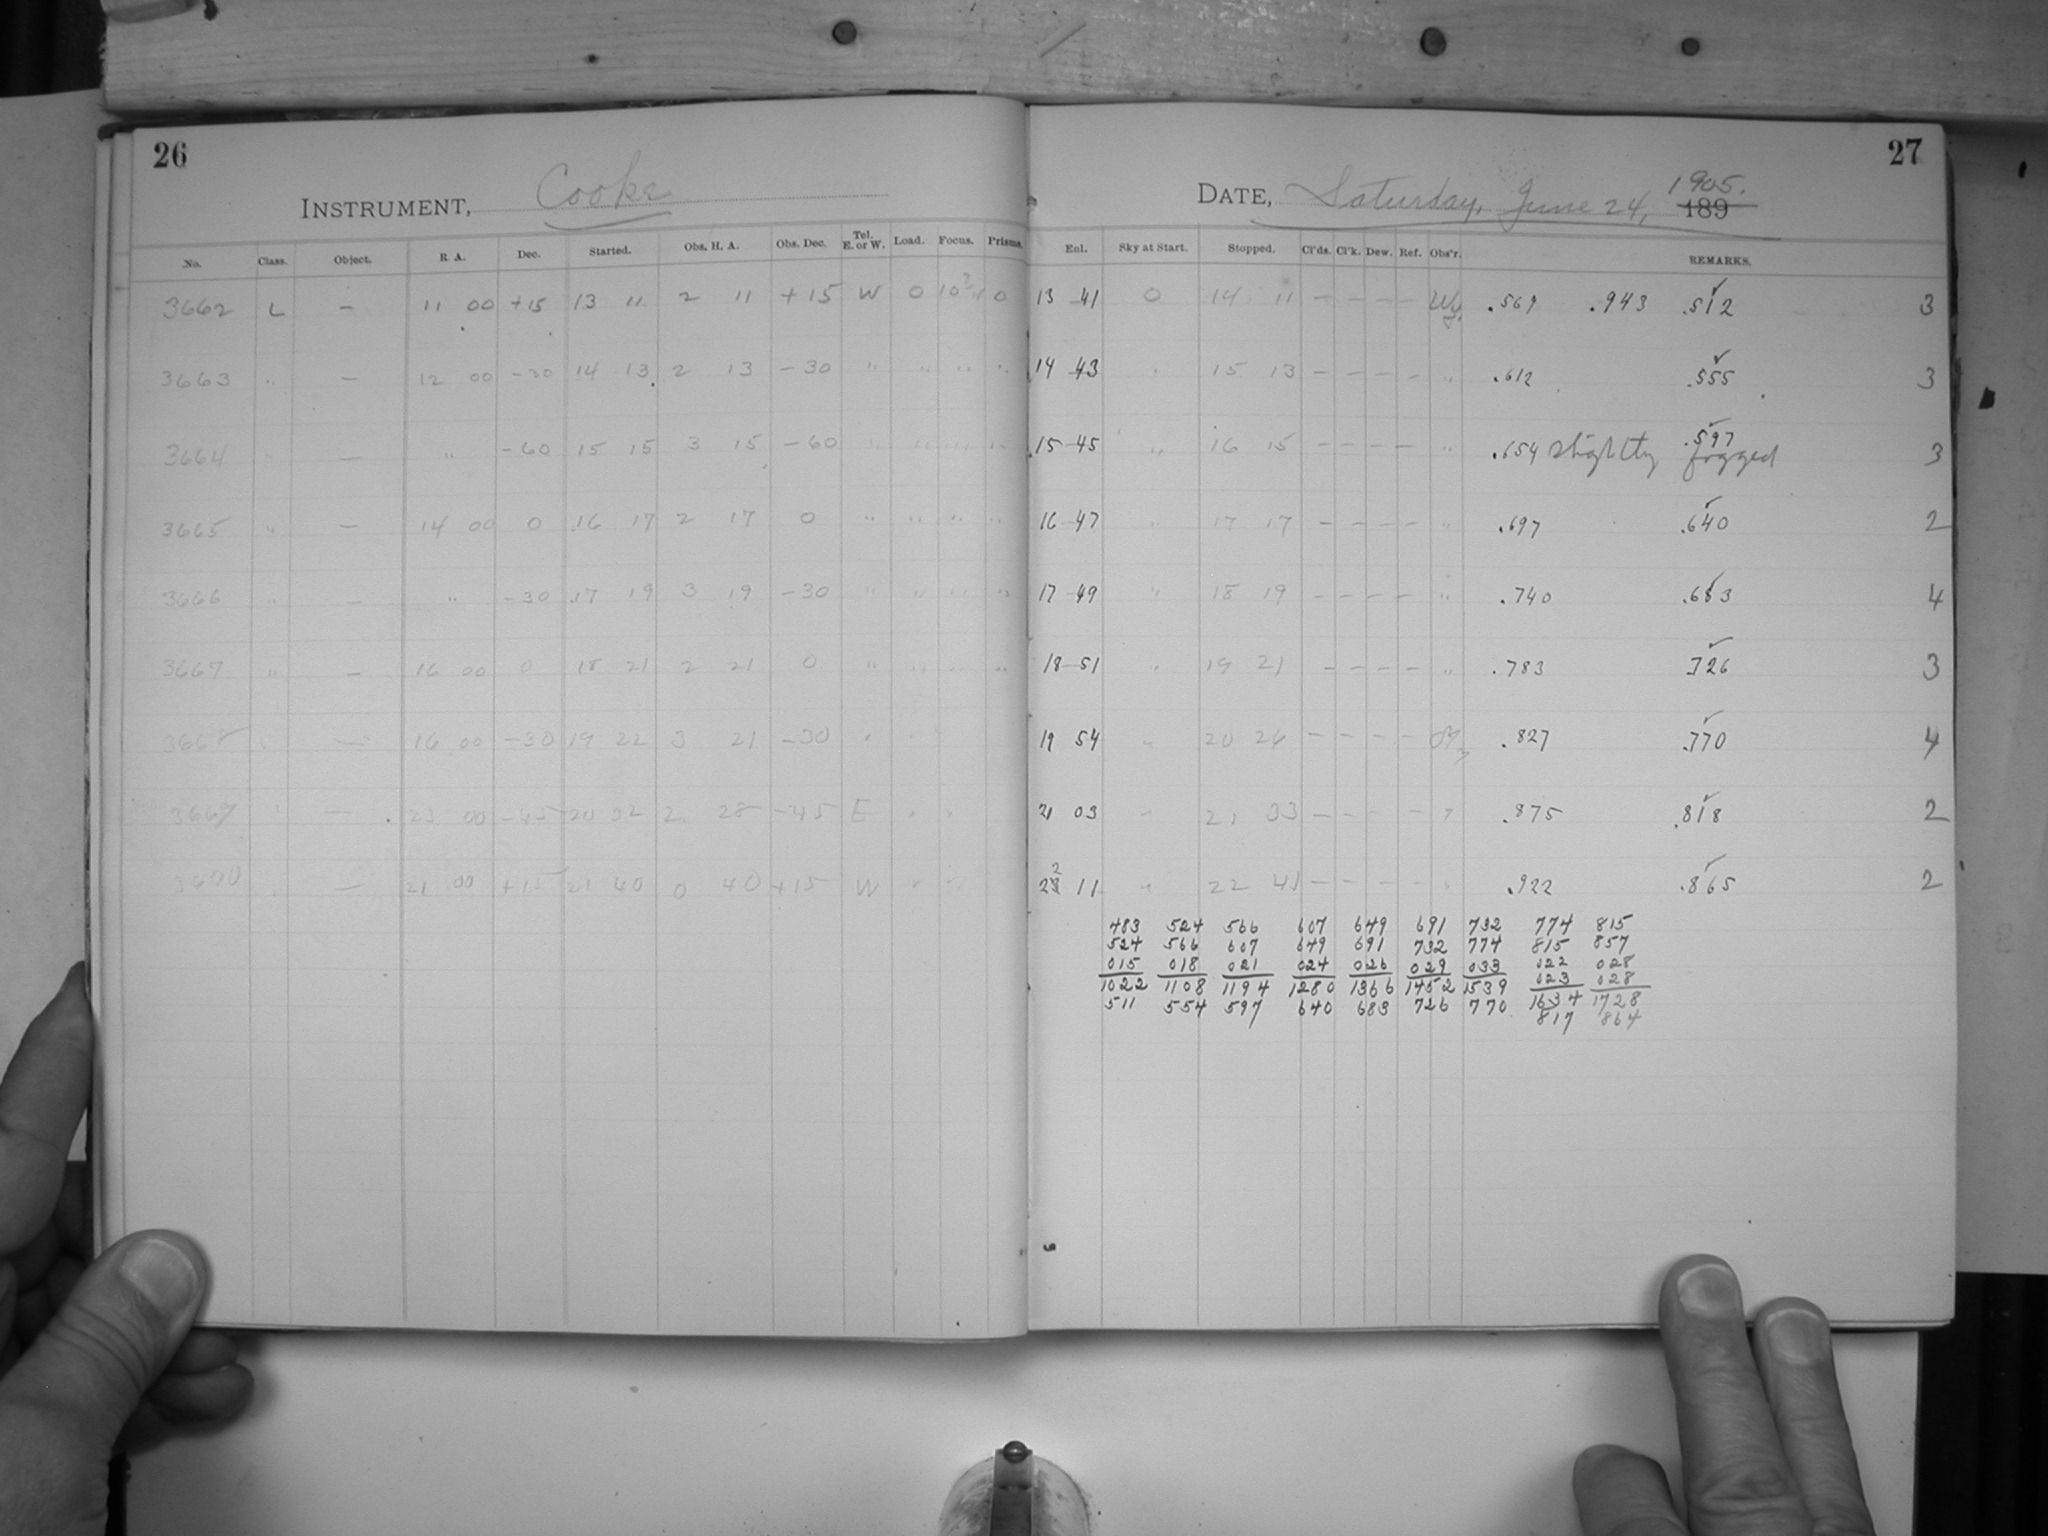 26
INSTRUMENT, Cooke
No. Class. Object. R. A. Dec. Started. Obs. H. A. Obs. Dec. Tel. E. or W. Load. Focus. Prisms.
3662 L — 11 00 +15 13 11 2 11 +15 W 0 10 0
3663 " — 12 00 -30 14 13 2 13 -30 " " " "
3664 " — " -60 15 15 3 15 -60 " " " "
3665 " — 14 00 0 16 17 2 17 0 " " " "
3666 " — " -30 17 19 3 19 -30 " " " "
3667 " — 16 00 0 18 21 2 21 0 " " " "
3668 " — 16 00 -30 19 22 3 21 -30 " "
3669 " — 23 00 -45 20 32 2 28 -45 E " "
3670 " — 21 00 +15 21 40 0 40 +15 W " "
27
DATE, Saturday, June 24, 1905.
189
Ext. Sky at Start. Stopped. Cl'ds. Cl'k. Dew. Ref. Obs'r. REMARKS.
13 41 0 14 11 — — — — .569 .943 .512 3
14 43 " 15 13 — — — — " .612 .555 3
15 45 " 16 15 — — — — " .654 slightly fogged .597 3
16 47 " 17 17 — — — — " .697 .640 2
17 49 " 18 19 — — — — " .740 .683 4
18 51 " 19 21 — — — — " .783 .726 3
19 54 " 20 24 — — — — .827 .770 4
21 03 " 21 33 — — — — " .875 .818 2
22 11 " 22 41 — — — — " .922 .865 2
483 524 566 607 649 691 732 774 815
524 566 607 649 691 732 774 815 857
015 018 021 024 026 029 033 022 028
023 028
1022 1108 1194 1280 1366 1452 1539 1634 1728
511 554 597 640 683 726 770 817 864